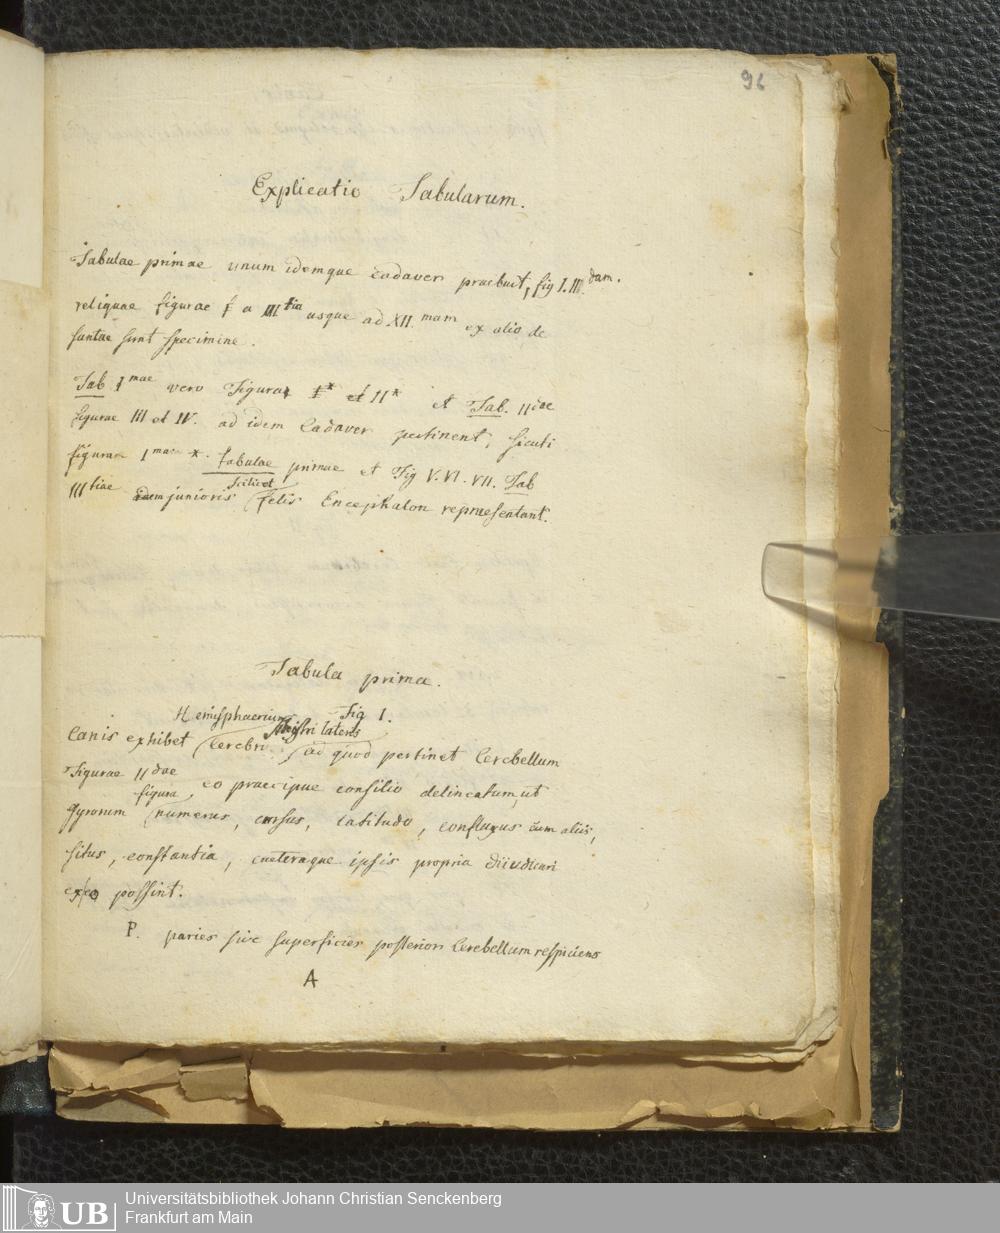 96
Explicatio Tabularum.
Tabulae primae unum idemque cadaver praebuit, fig I. III dam.
reliquae figurae f a III tia usque ad XII. mam ex alio, de
suntae sunt specimine.
Tab I mae vero Figurae I* et II* et Tab. II dae
figurae III et IV. ad idem Cadaver pertinent, sicuti
figurae I mae *. tabulae primae et Fig V. VI. VII. Tab
III tiae junioris scilicet felis Encephalon repraesentant.
Tabula prima.
Fig I.
Canis exhibet Hemisphaerium Cerebri sinistri lateris ad quod pertinet Cerebellum
Figurae II dae, eo praecipue consilio delineatum, ut
Gyrorum figura numerus, cursus, latitudo, confluxus cum aliis,
situs, constantia, caeteraque ipsis propria diiudicari
ex eo possint.
P. paries sive superficies posterior Cerebellum respiciens
A
UB
Universitätsbibliothek Johann Christian Senckenberg
Frankfurt am Main